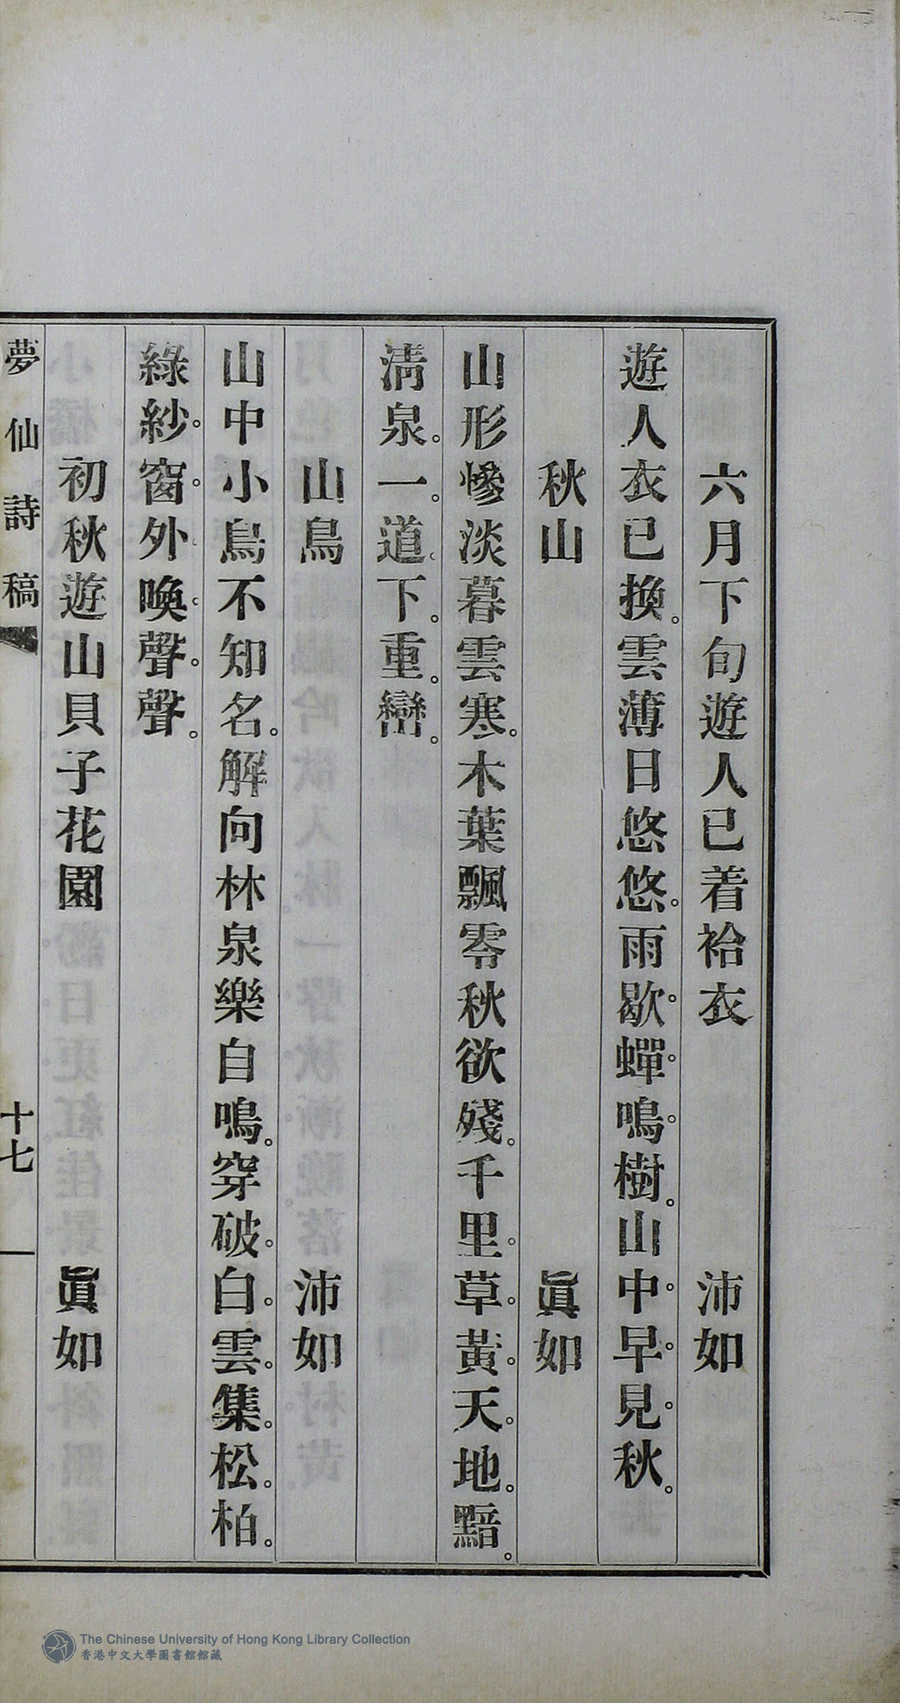 六月下旬遊人已着袷衣　沛如
遊人衣已換。雲薄日悠悠。雨歇。蟬。鳴。樹。山中。早。見。秋。
秋山　眞如
山形慘淡暮雲寒。木葉飄零秋欲殘。千里。草。黃。天。地。黯。
淸泉。一。道。下。重。巒。
山鳥　沛如
山中小鳥不知名。解向林泉樂自鳴。穿破。白。雲。集。松。柏。
綠紗。窗。外。喚。聲。聲。
初秋遊山貝子花園　眞如
夢仙詩稿
十七
The Chinese University of Hong Kong Library Collection
香港中文大學圖書館館藏